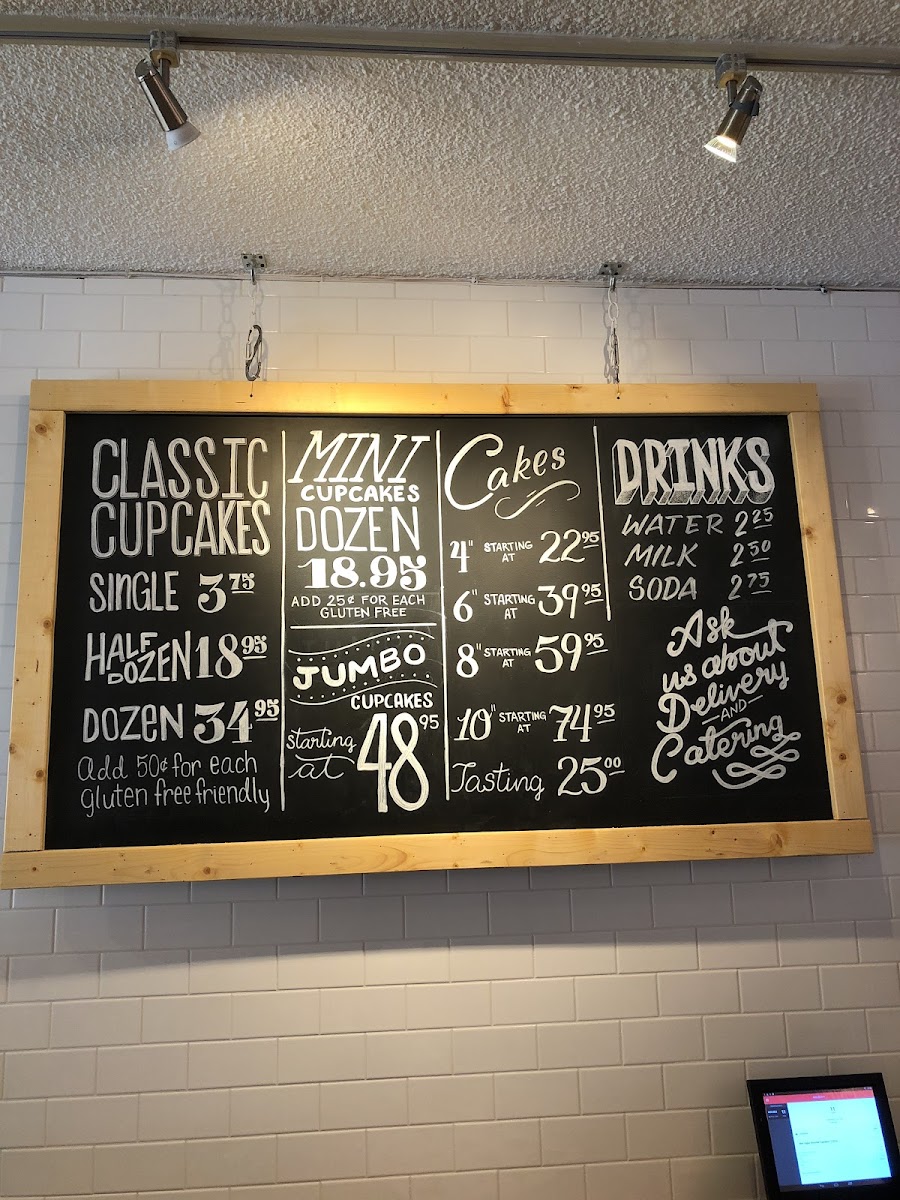 CLASSIC
CUPCAKES
SINGLE 3.75
HALF DOZEN 18.95
DOZEN 34.95
Add 50¢ for each
gluten free friendly
MINI
CUPCAKES
DOZEN
18.95
ADD 25¢ FOR EACH
GLUTEN FREE
JUMBO
CUPCAKES
starting
at 48.95
Cakes
4" STARTING AT 22.95
6" STARTING AT 39.95
8" STARTING AT 59.95
10" STARTING AT 74.95
Tasting 25.00
DRINKS
WATER 2.25
MILK 2.50
SODA 2.75
Ask
us about
Delivery
-AND-
Catering